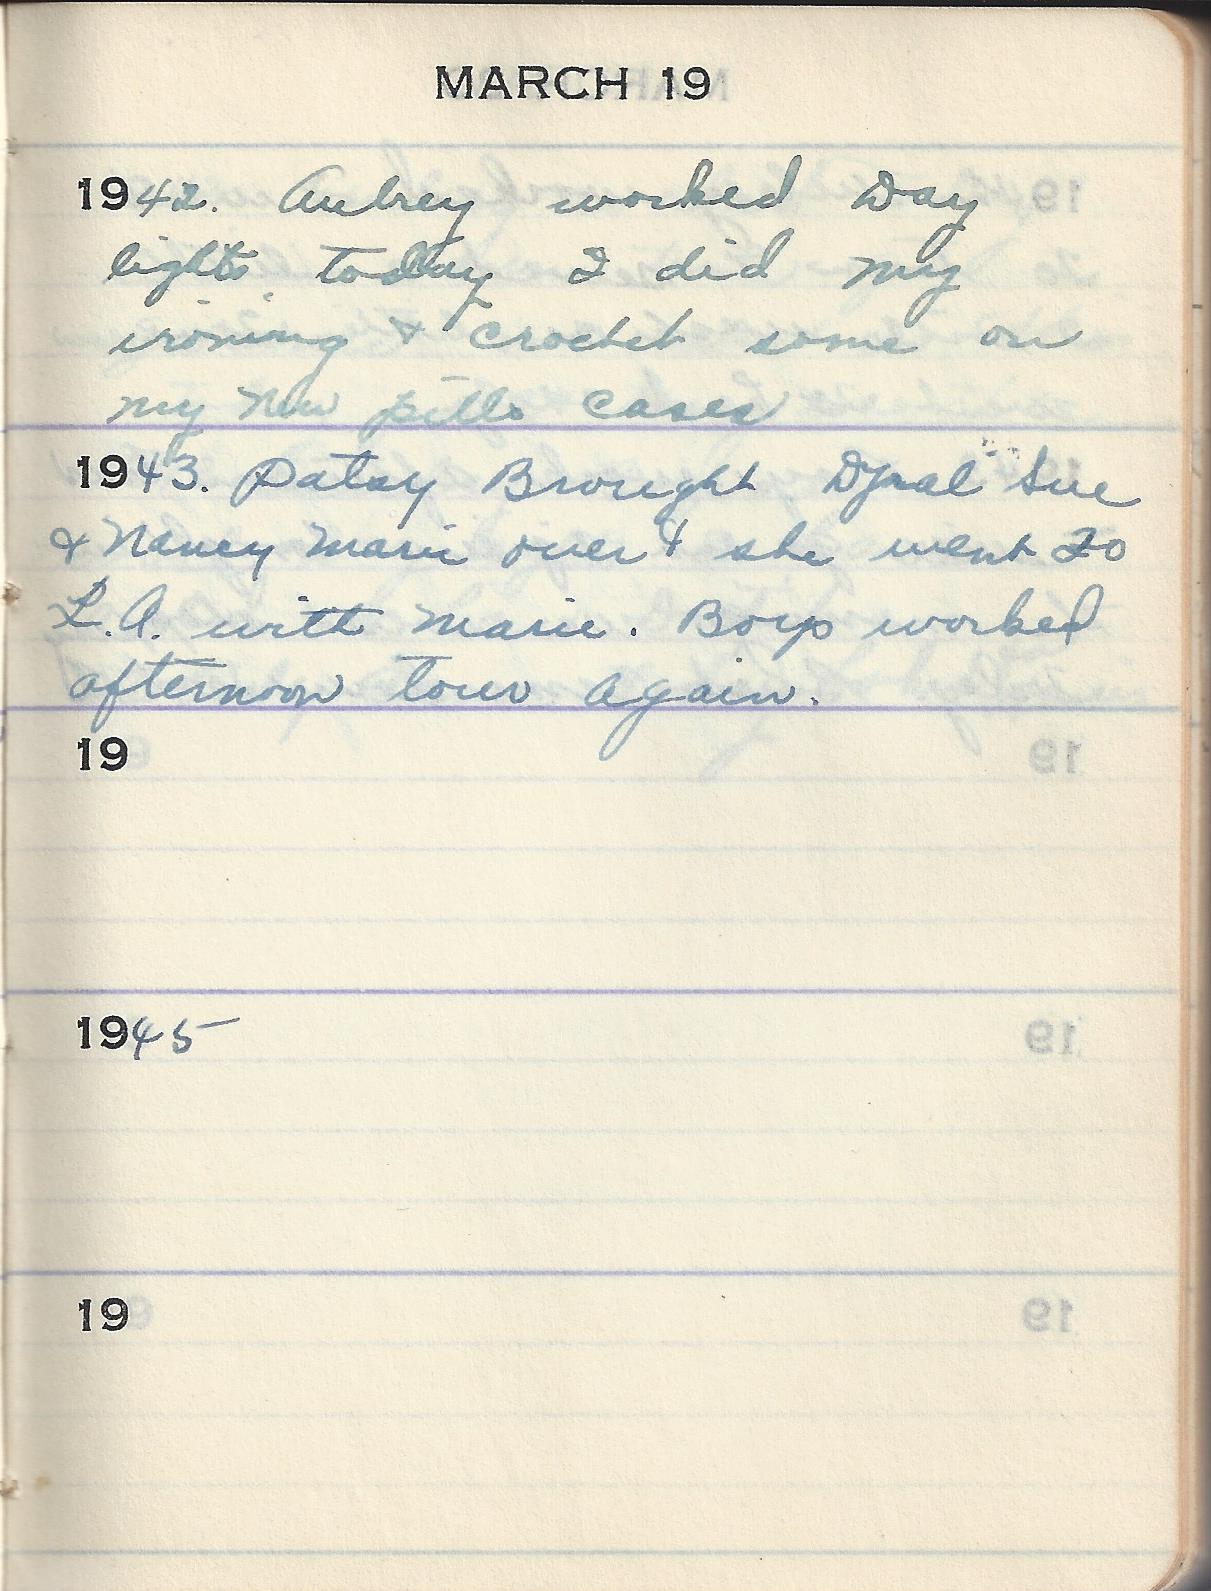 MARCH 19
1942. Aubrey worked Day
lights today I did my
ironing & crochet some on
my New pillo cases
1943. Patsy Brought Djual Sue
& Nancy Marie over & she went To
L.A. with Marie. Boys worked
afternoon tour again.
19
1945
19